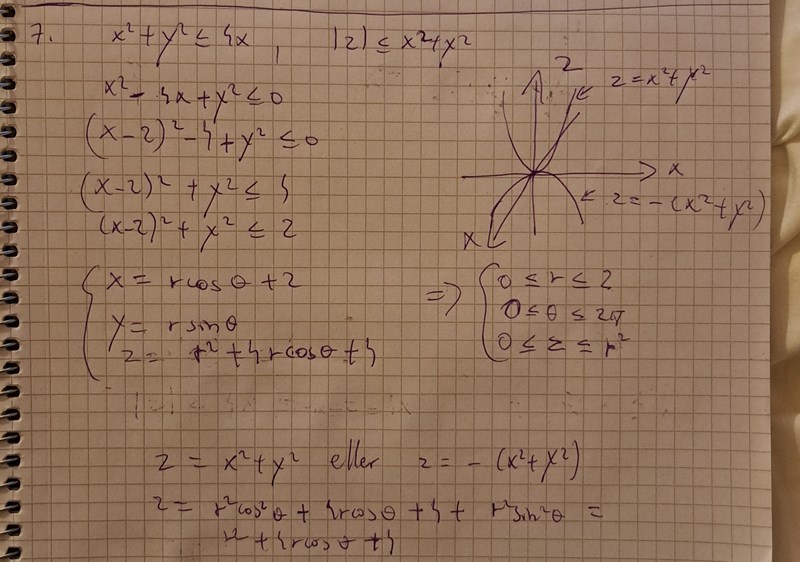 7. x² + y² ≤ 4x , |z| ≤ x² + y²
x² - 4x + y² ≤ 0
(x-2)² - 4 + y² ≤ 0
(x-2)² + y² ≤ 4
(x-2)² + y² ≤ 2
z
z = x² + y²
x
z = -(x² + y²)
x
{ x = r cos θ + 2
y = r sin θ
z = r² + 4r cos θ + 4
=> { 0 ≤ r ≤ 2
0 ≤ θ ≤ 2π
0 ≤ z ≤ r²
z = x² + y² eller z = - (x² + y²)
z = r² cos² θ + 4r cos θ + 4 + r² sin² θ =
r² + 4r cos θ + 4